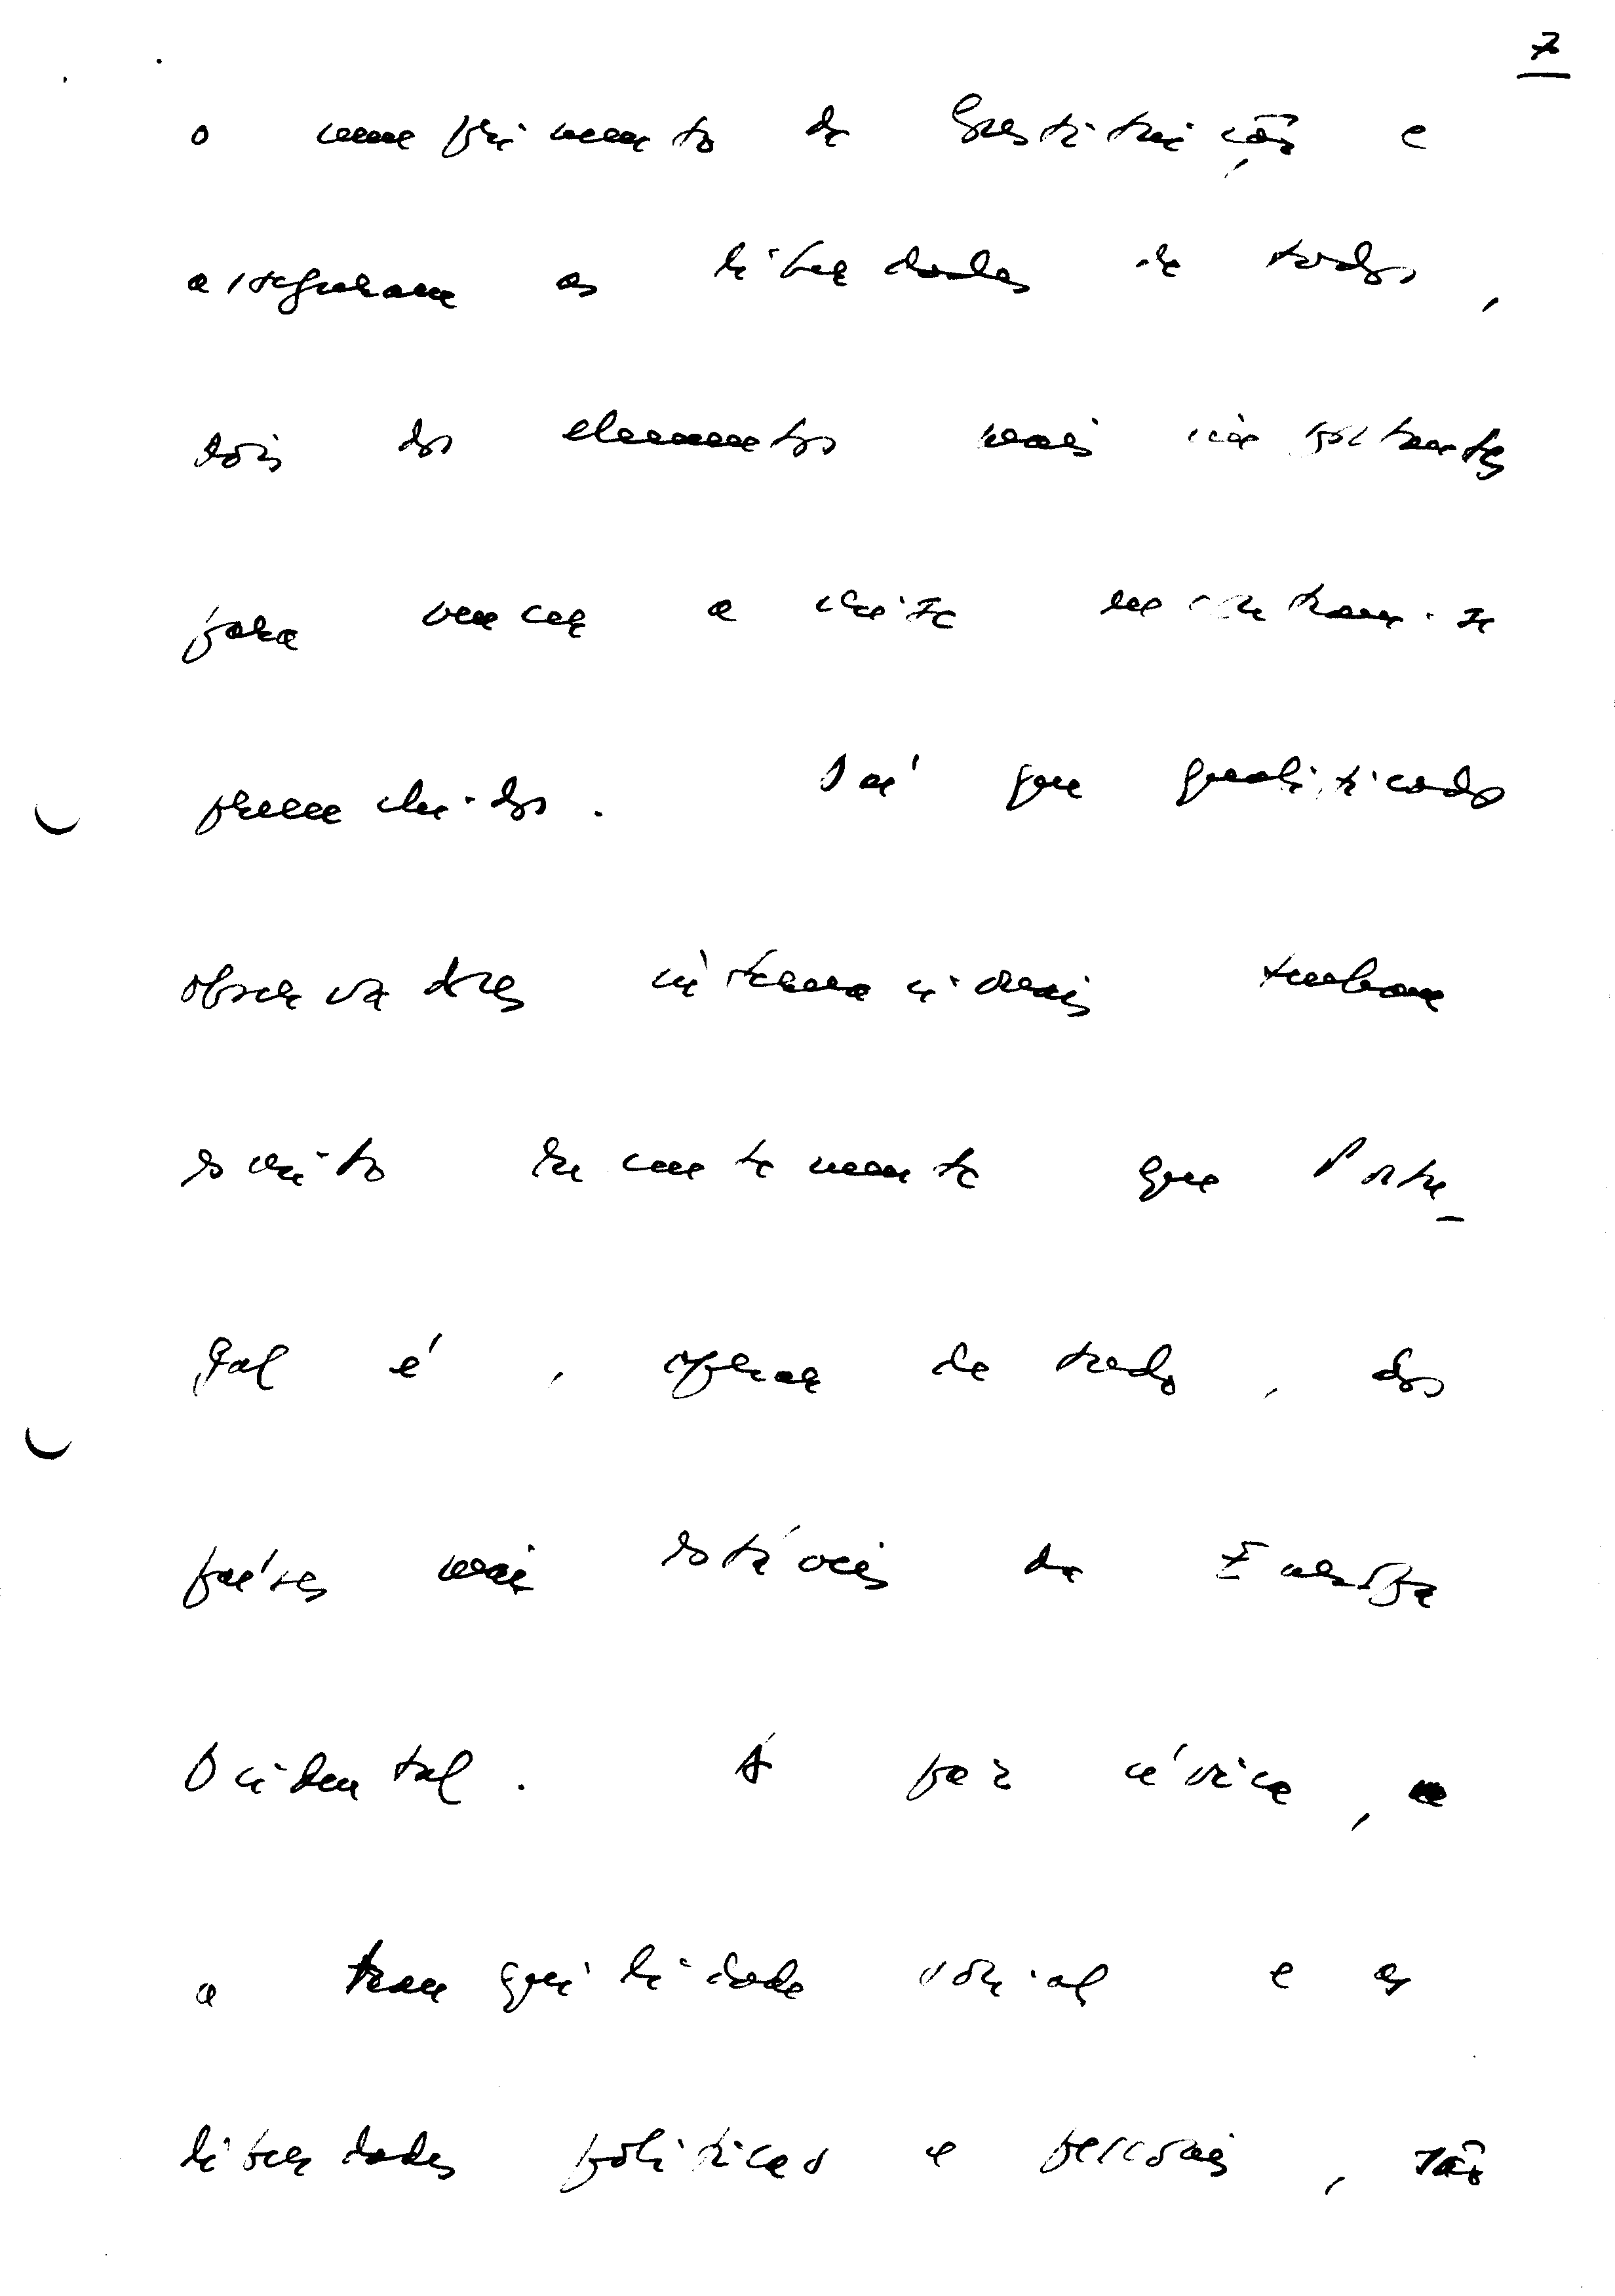 7
o cumprimento da Constituição e
asseguram as liberdades de todos,
dois dos elementos mais importantes
para vencer a crise encontram-se
preenchidos. Daí que qualificados
observadores internacionais tenham
escrito recentemente que Portu_
gal é, apesar de tudo, dos
países mais estáveis da Europa
Ocidental. A paz cívica,
a tranquilidade social e as
liberdades políticas e pessoais, são